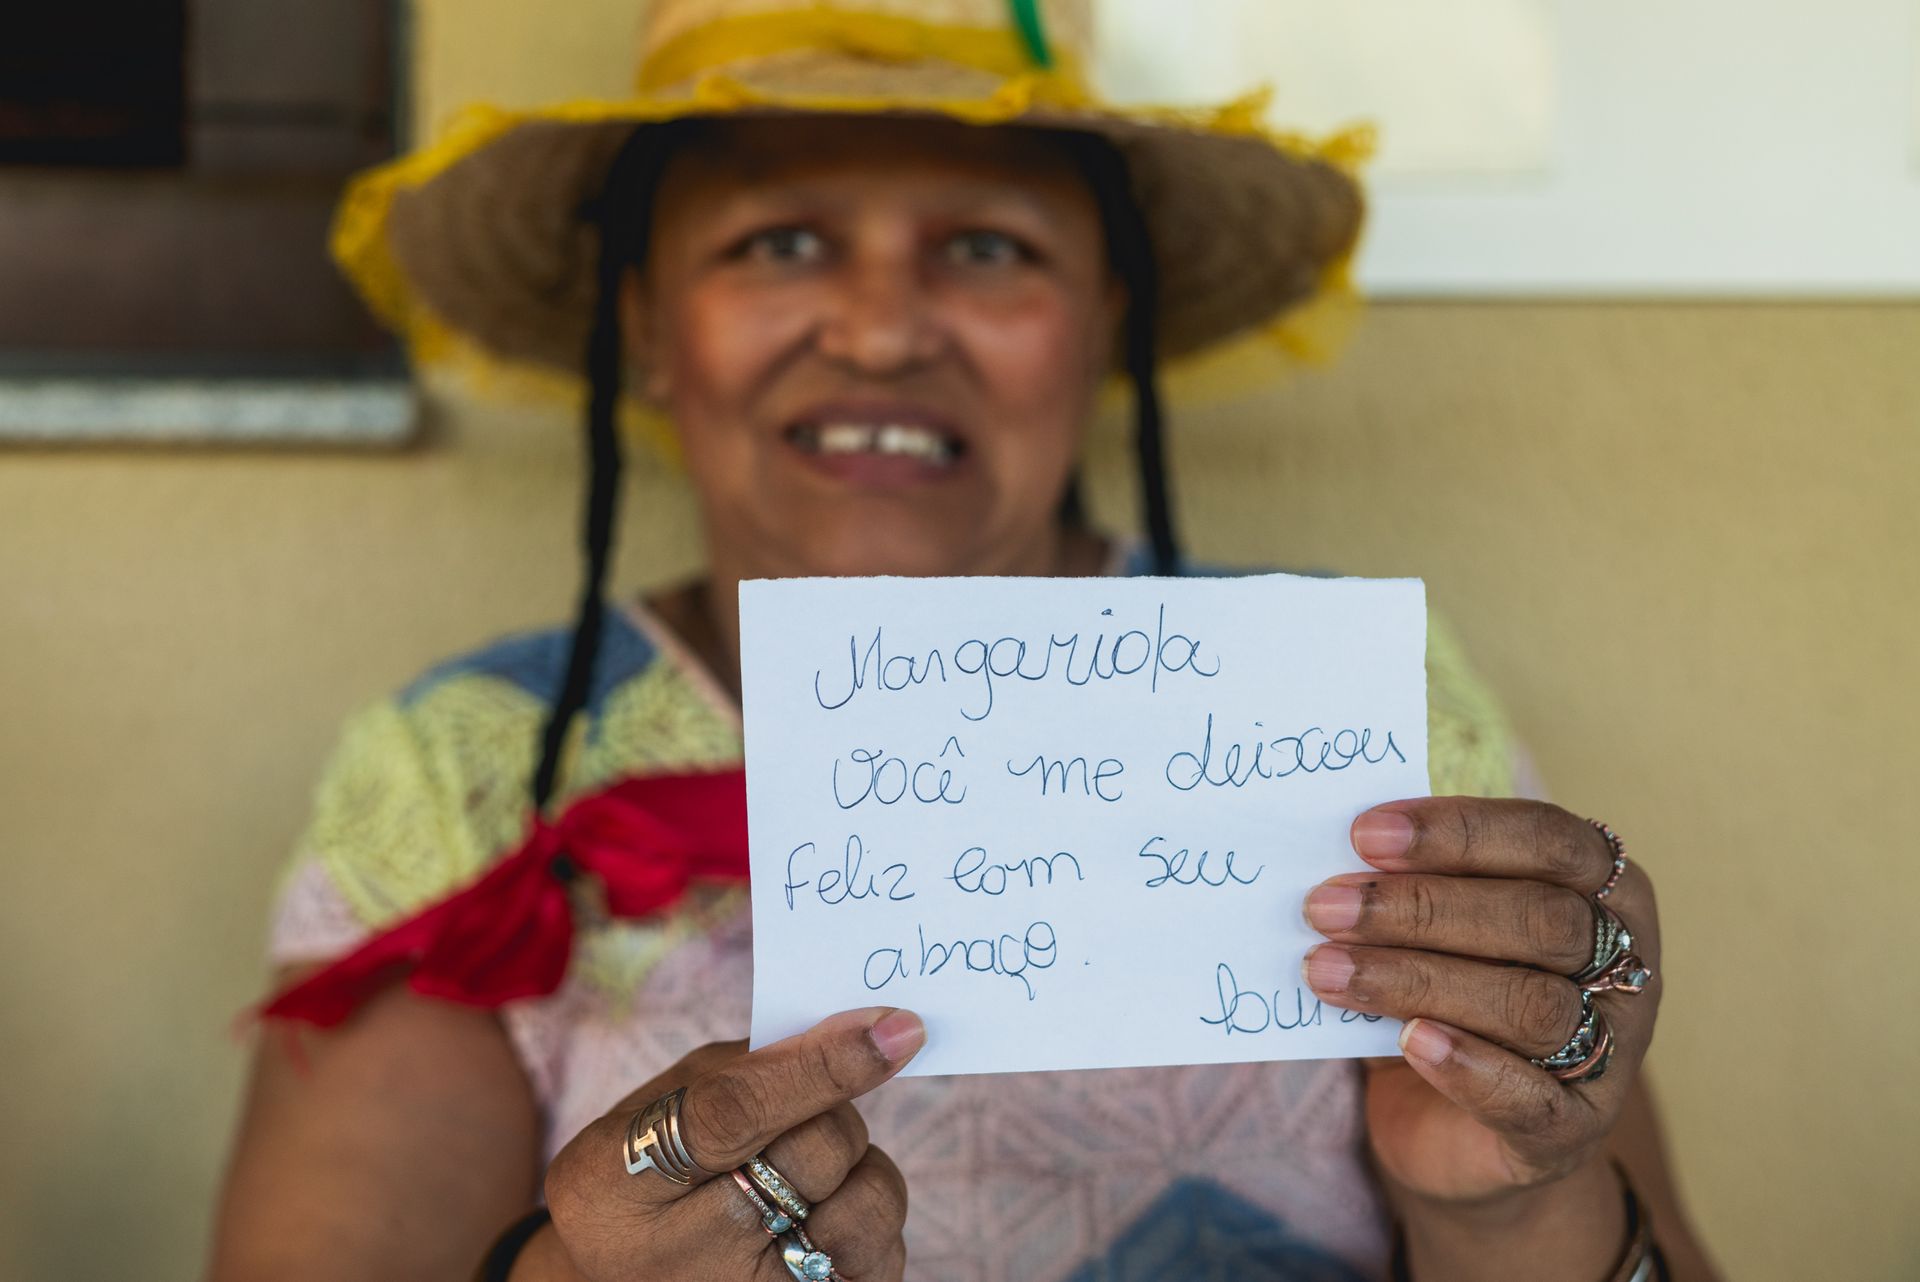 Margariola
você me deixou
feliz com seu
abraço.